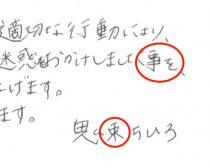 適切な行動により、
迷惑をおかけしました事を、
げます。
ます。
東ちひろ